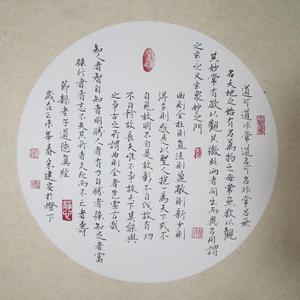 道可道非常道名可名非常名無
名天地之始有名萬物之母常無欲以觀
其妙常有欲以觀其徼此兩者同出而異名同謂
之玄之又玄眾妙之門
曲則全枉則直窪則盈敝則新少則
得多則惑是以聖人抱一為天下式不
自見故明不自是故彰不自伐故有功
不自矜故長夫唯不爭故天下莫能與
之爭古之所謂曲則全者豈虛言哉
知人者智自知者明勝人者有力自勝者強知足者富
強行者有志不失其所者久死而不亡者壽
節錄老子道德真經
歲在乙未年春宋建安於燈下